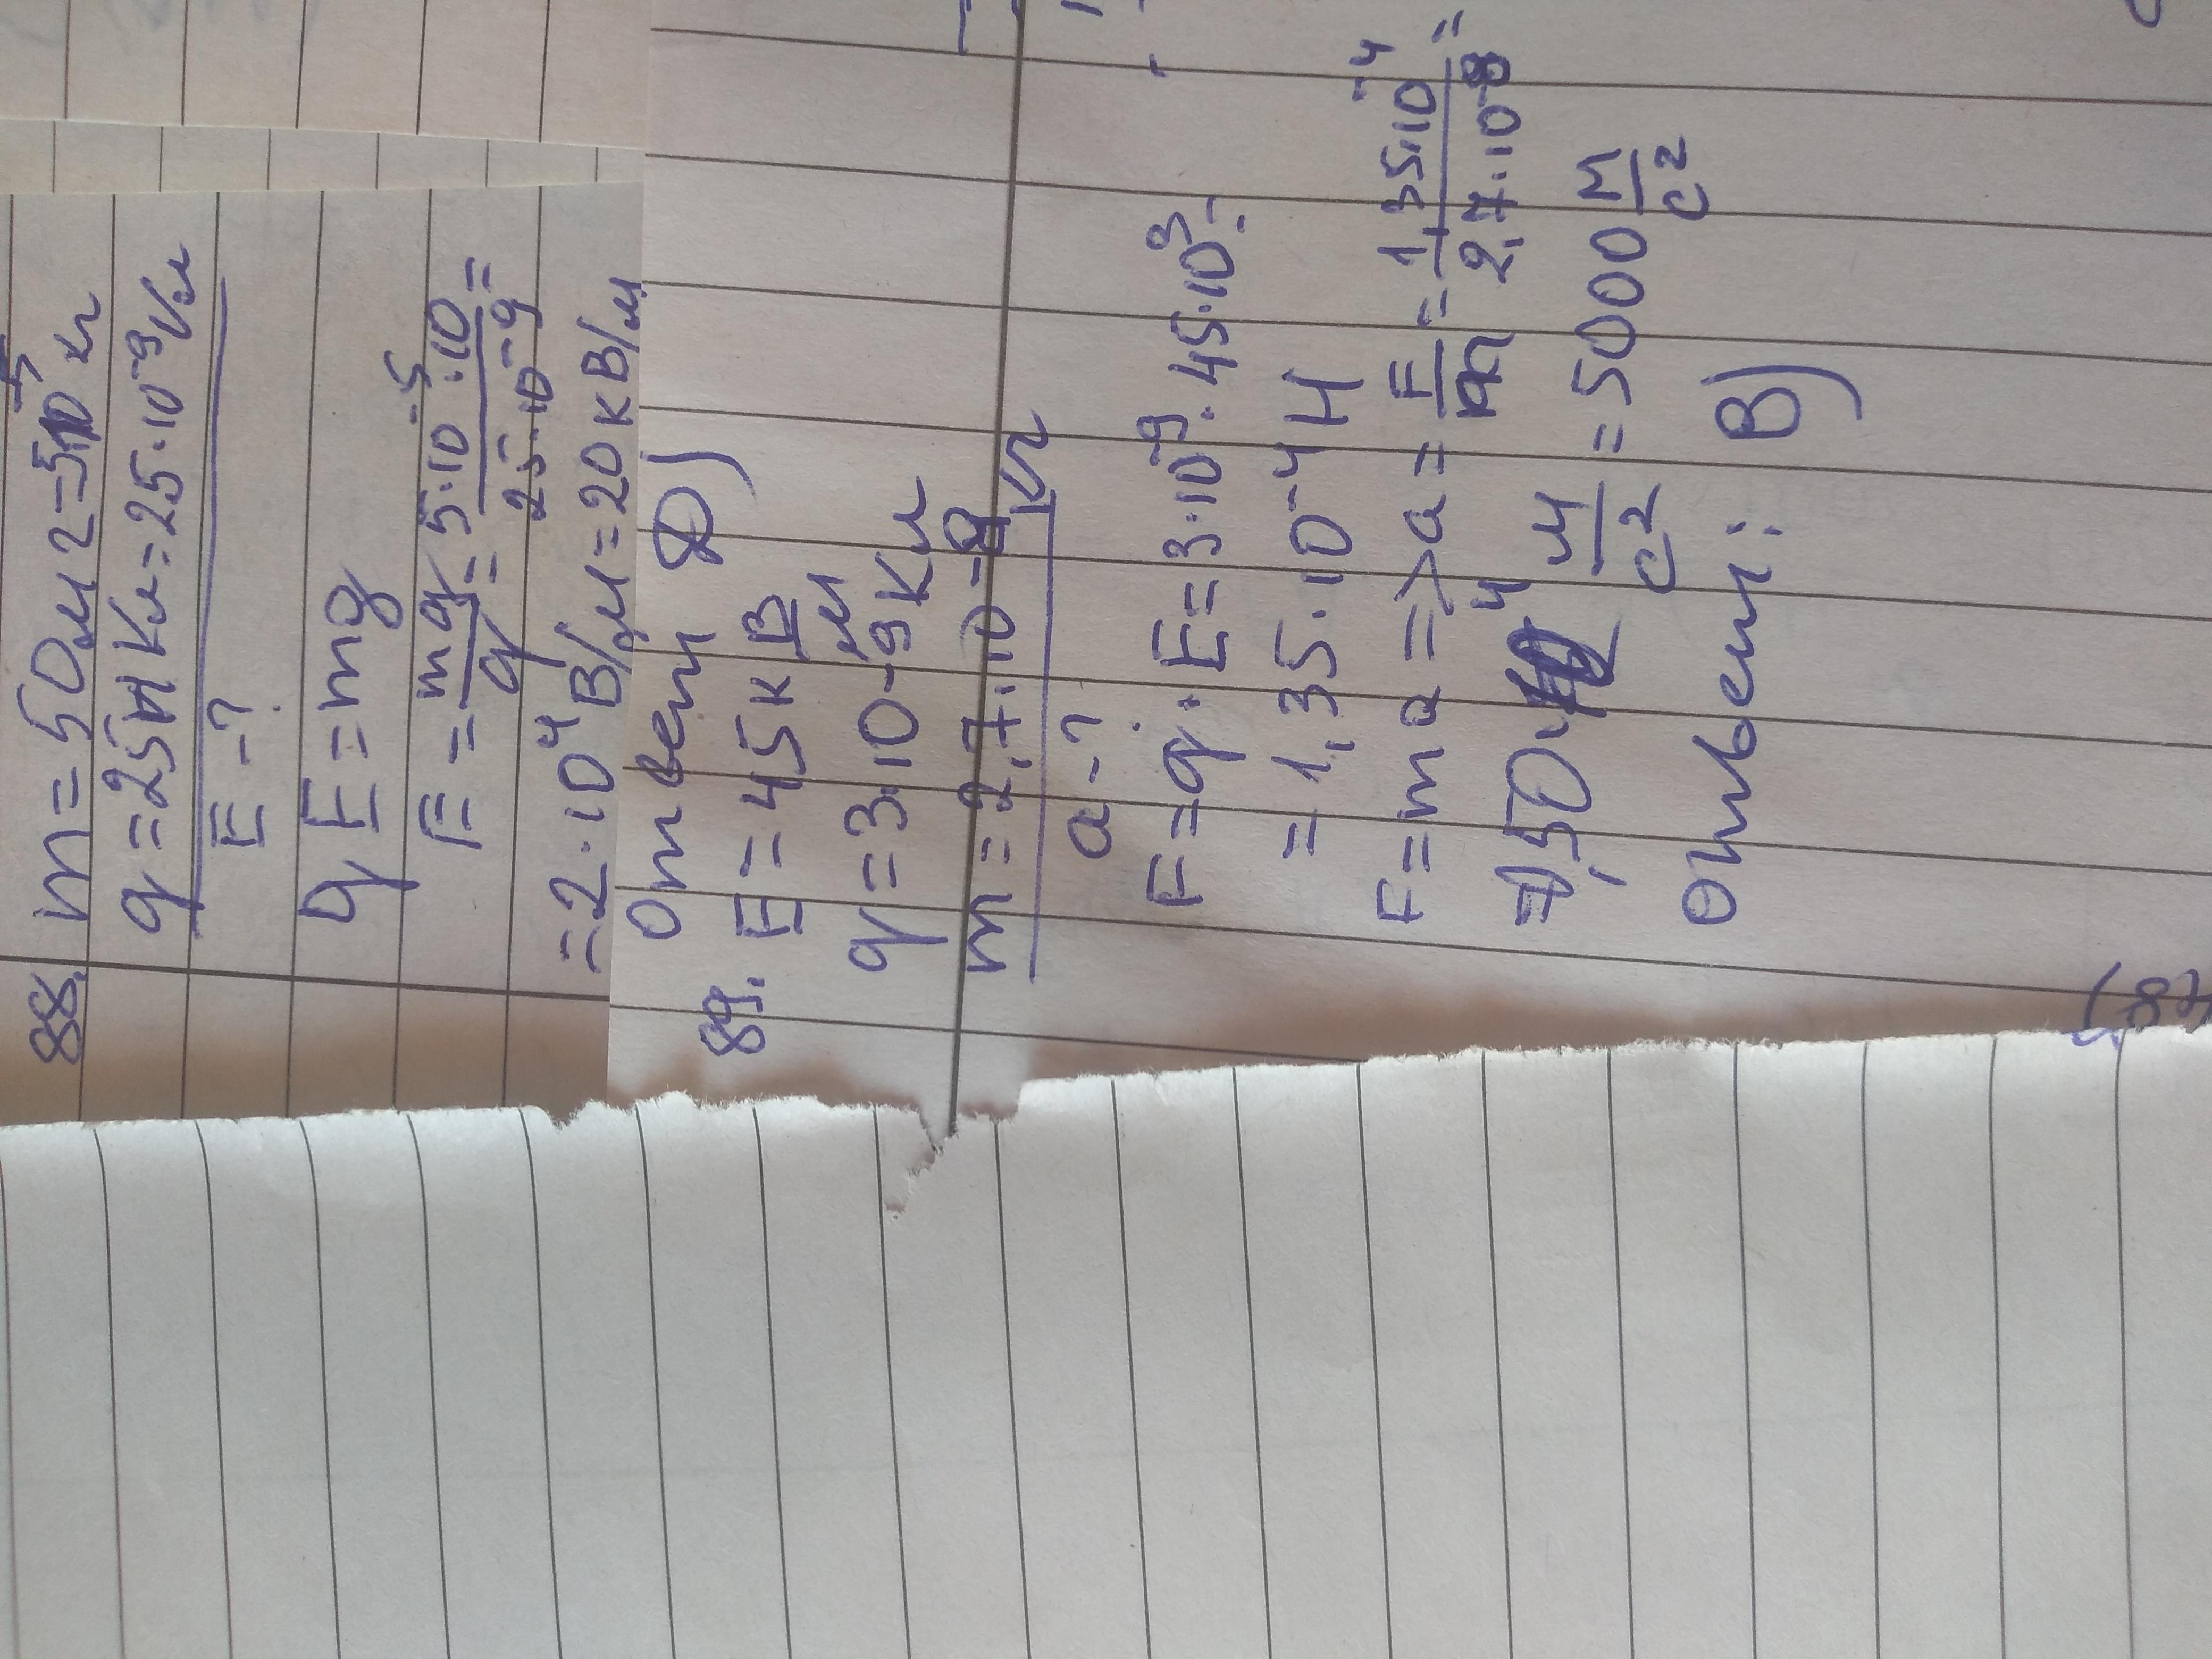 88. m=50мг=5·10⁻⁵кг
q=25нКл=25·10⁻⁹Кл
E-?
qE=mg
E=mg/q=5·10⁻⁵·10/25·10⁻⁹=
=2·10⁴В/м=20кВ/м
Ответ D)
89. E=45кВ/м
q=3·10⁻⁹Кл
m=2,7·10⁻⁸кг
a-?
F=q·E=3·10⁻⁹·45·10³=
=1,35·10⁻⁴Н
F=ma=>a=F/m=1,35·10⁻⁴/2,7·10⁻⁸=
=0,50·10⁴ м/с²=5000 м/с²
Ответ: B)